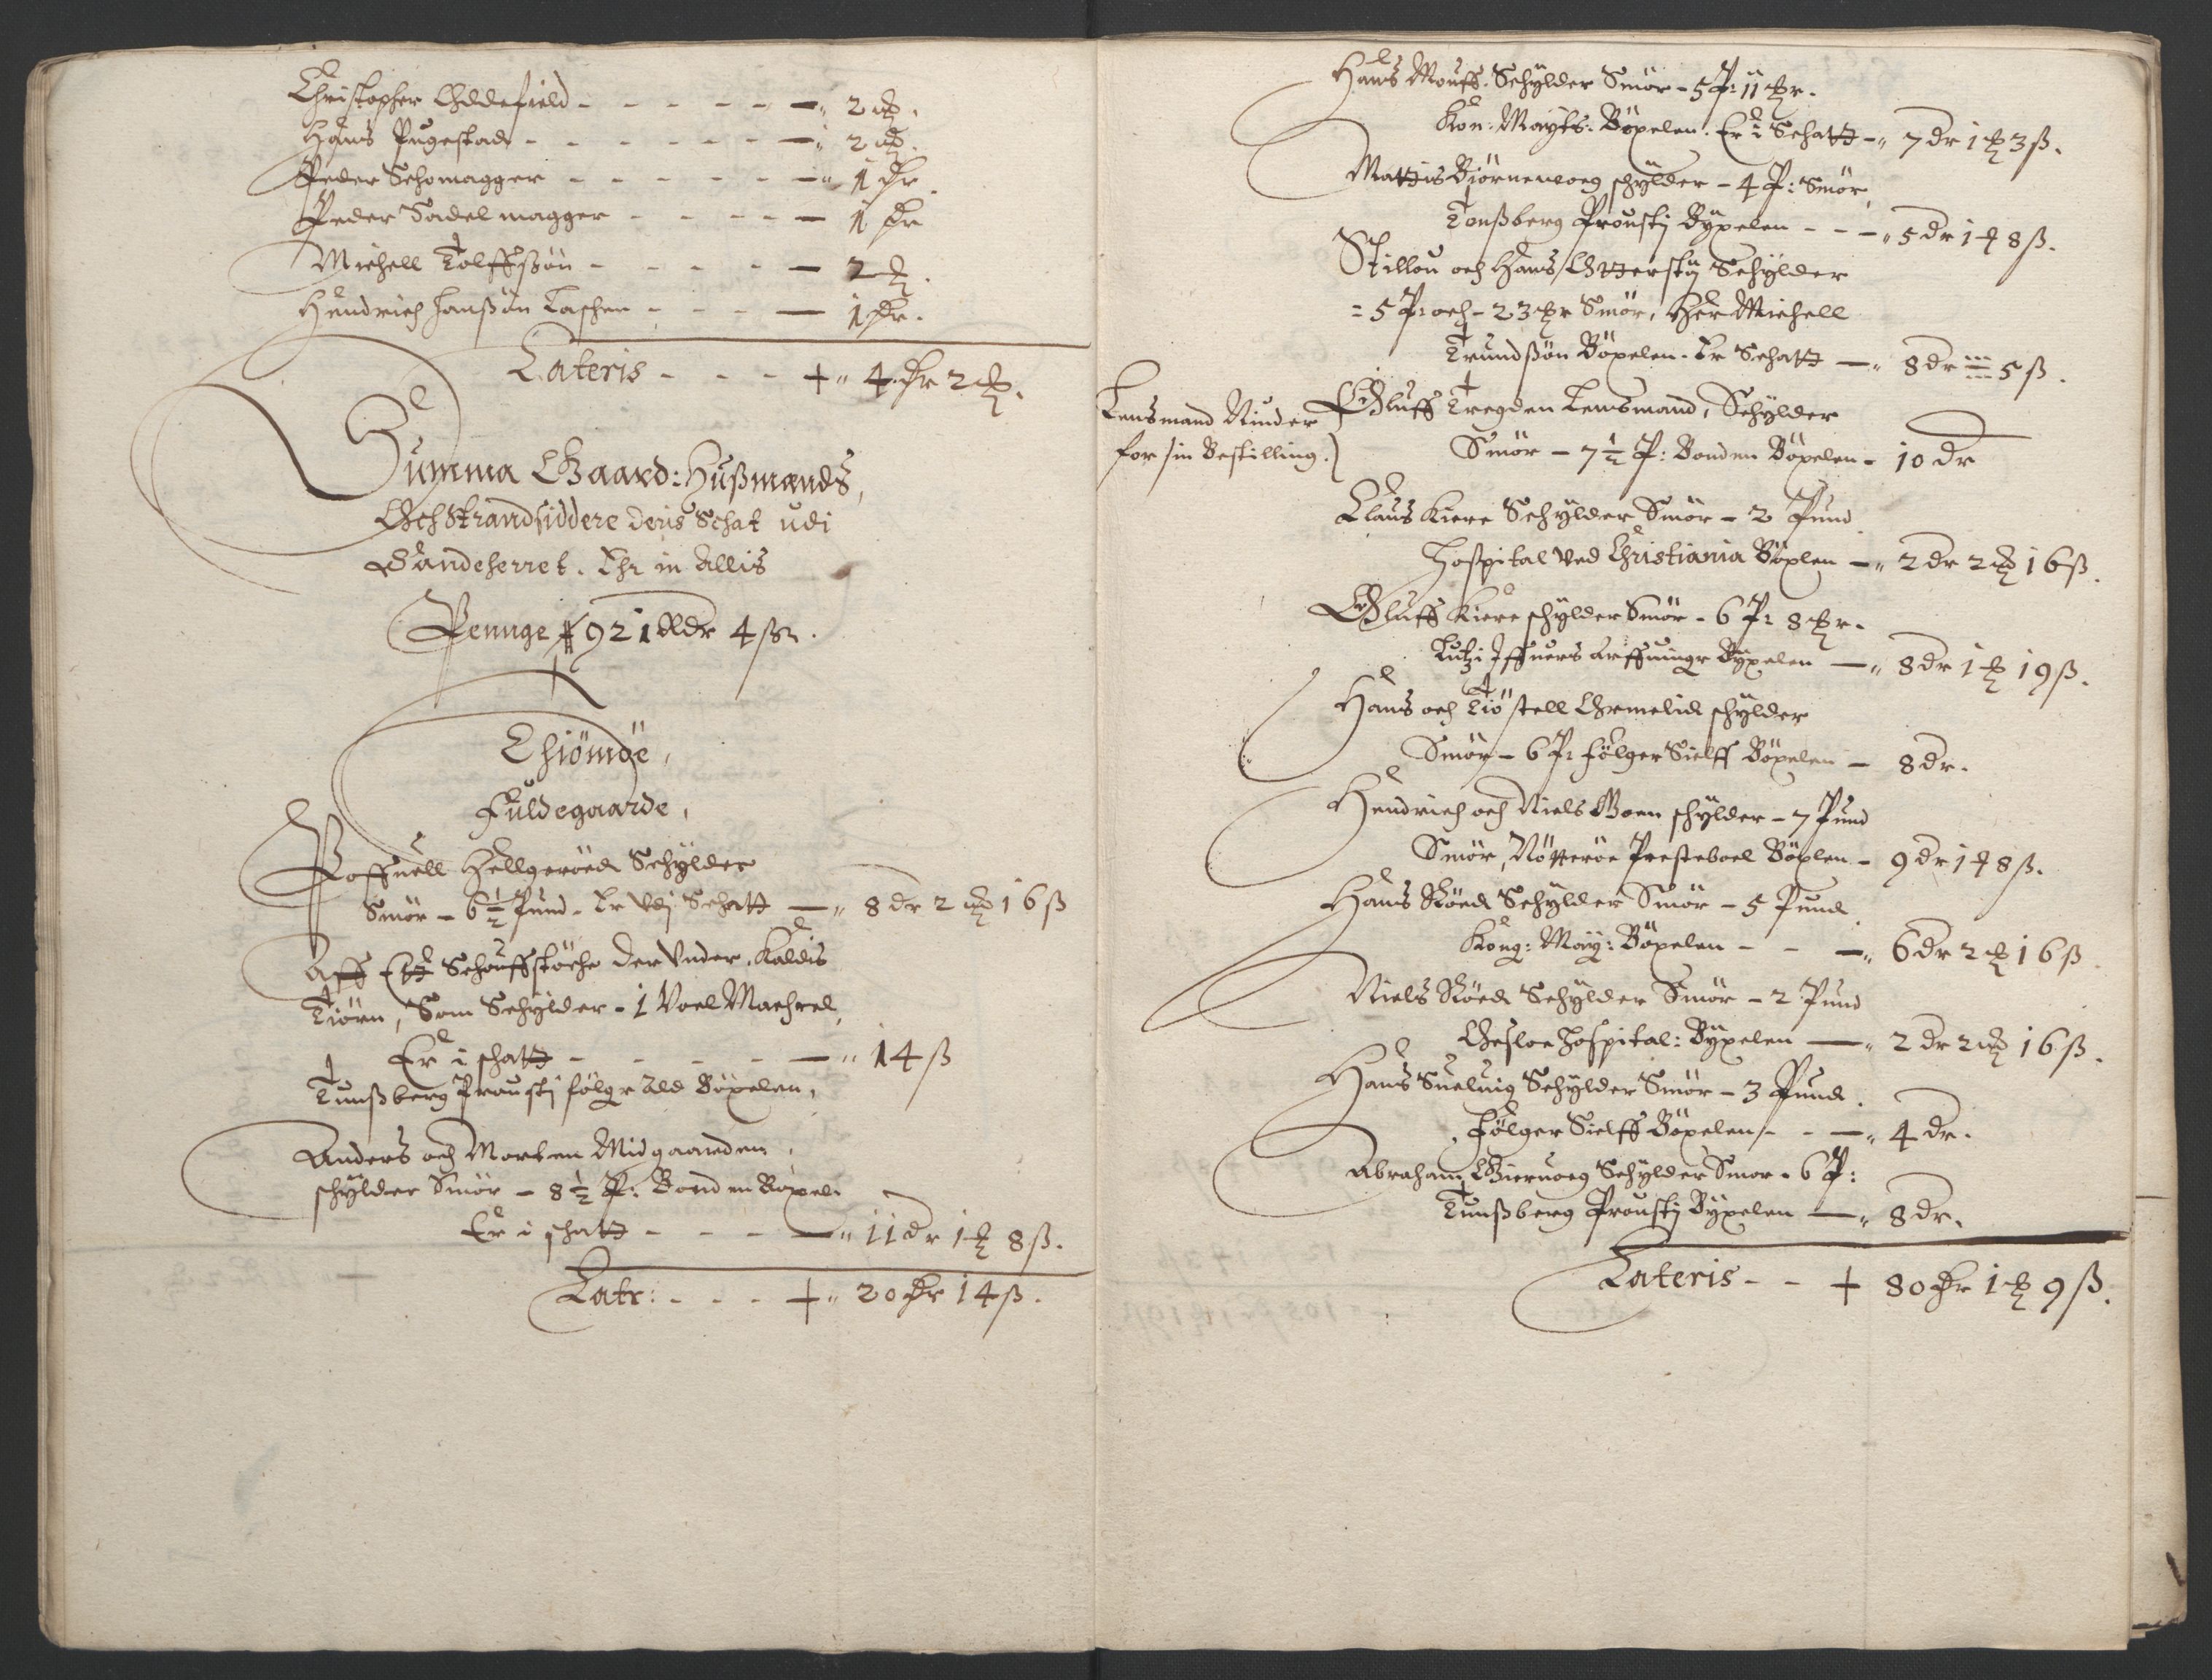 Christopher Oddefield - - - - - 2 ꝏ.
Hans Pugestad - - - - - - 2 ꝏ.
Peder Schomagger - - - - - 1 dr
Peder Sadelmagger - - - - 1 dr
Michell Tolffßøn - - - - - 2 ꝏ.
Hendrich Hanßøn Laschen - - - 1 dr.
Lateris - - - + 4 dr 2 ꝏ.
Summa Gaard: Hußmends,
Och Strandsiddere deris Schat udi
Sandeherret. Ehr in Allis
Pennge 921 Rdr 4 ß.
Thiömöe,
Fuldegaarde,
Poffuell Hellgeröed Schylder
Smör - 6½ Pund - Er Vdj Schatt - 8 dr 2 ꝏ 16 ß
Aff Ett Schouffstöche der Vnder, Kaldis
Tiörn, Som Schylder - 1 Voel Machrel,
Er i schatt - - - - - 14 ß
Tunßberg Proustj følgr Ald Böxelen,
Anders och Morten Midgaarden,
schylder Smör - 8½ P: Bonden Böxel.
Er i schatt - - - 11 dr 1 ꝏ 8 ß.
Latr: - - - + 20 dr 14 ß.
Hans Mouff. Schylder Smör - 5 P: 11 mkr.
Kon: Mayts: Böxelen. Er i Schatt - 7 dr 1 ꝏ 3 ß.
Mattis Biörneuoeg schylder - 4 P: Smör,
Tonßberg Proustj Byxelen - - - 5 dr 1 ꝏ 8 ß.
Stillou och Hans Otterstij Schylder
= 5 P: och - 23 mkr Smör, Her Michell
Trundßøn Böxelen - Er Schatt - 8 dr 5 ß.
Lensmand Ninder
for sin Bestilling.
Oluff Tregden Lensmand, Schylder
Smör - 7½ P: Bonden Böxelen - 10 dr
Claus Kiere Schylder Smör - 2 Pund
Hospital ved Christiania Böxlen - 2 dr 2 ꝏ 16 ß.
Oluff Kiere schylder Smör - 6 P: 8 mkr.
Lutzi Iffuers arffuingr Byxelen - 8 dr 1 ꝏ 19 ß.
Hans och Tiöstell Ormelid schylder
Smör - 6 P: følger Sielff Böxelen - 8 dr.
Hendrich och Niels Moen schylder - 7 Pund
Smör, Nötteröe Presteboel Böxlen - 9 dr 1 ꝏ 8 ß.
Hans Röed Schylder Smör - 5 Pund
Kong: May: Böxelen - - - 6 dr 2 ꝏ 16 ß
Niels Röed Schylder Smör - 2 Pund
Opsloe Hospital: Byxelen - 2 dr 2 ꝏ 16 ß.
Hans Sueluig Schylder Smör - 3 Pund.
Følger Sielff Böxelen - - - 4 dr.
Abraham Gieruoeg Schylder Smör - 6 P:
Tunßberg Proustj Byxelen - 8 dr.
Lateris - - + 80 dr 1 ꝏ 9 ß.